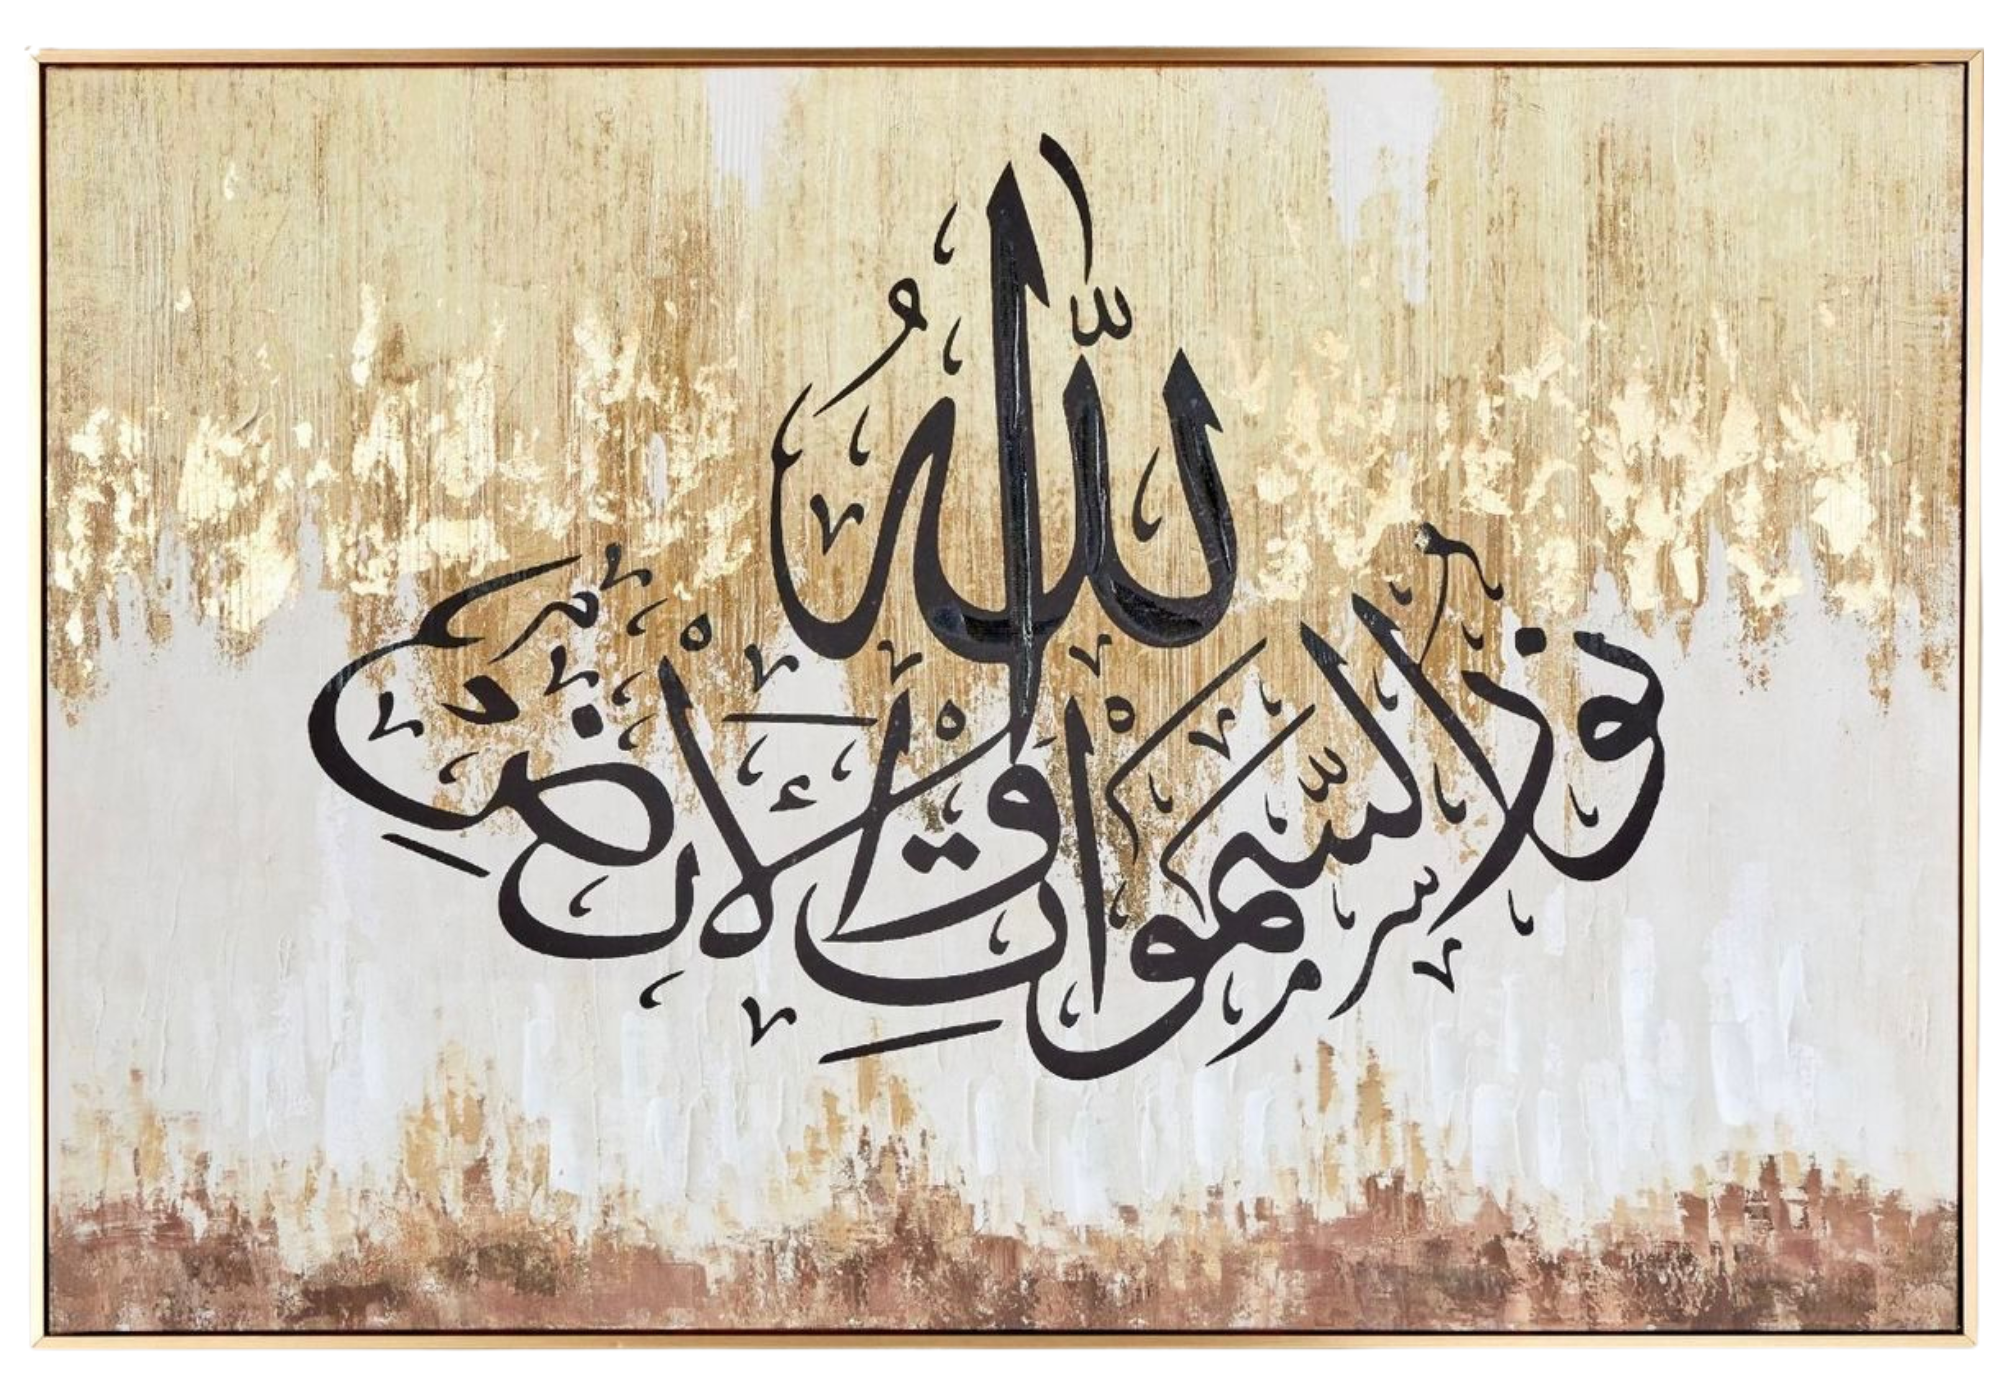 اللَّهُ
نُورُ السَّمٰوَاتِ وَالْأَرْضِ